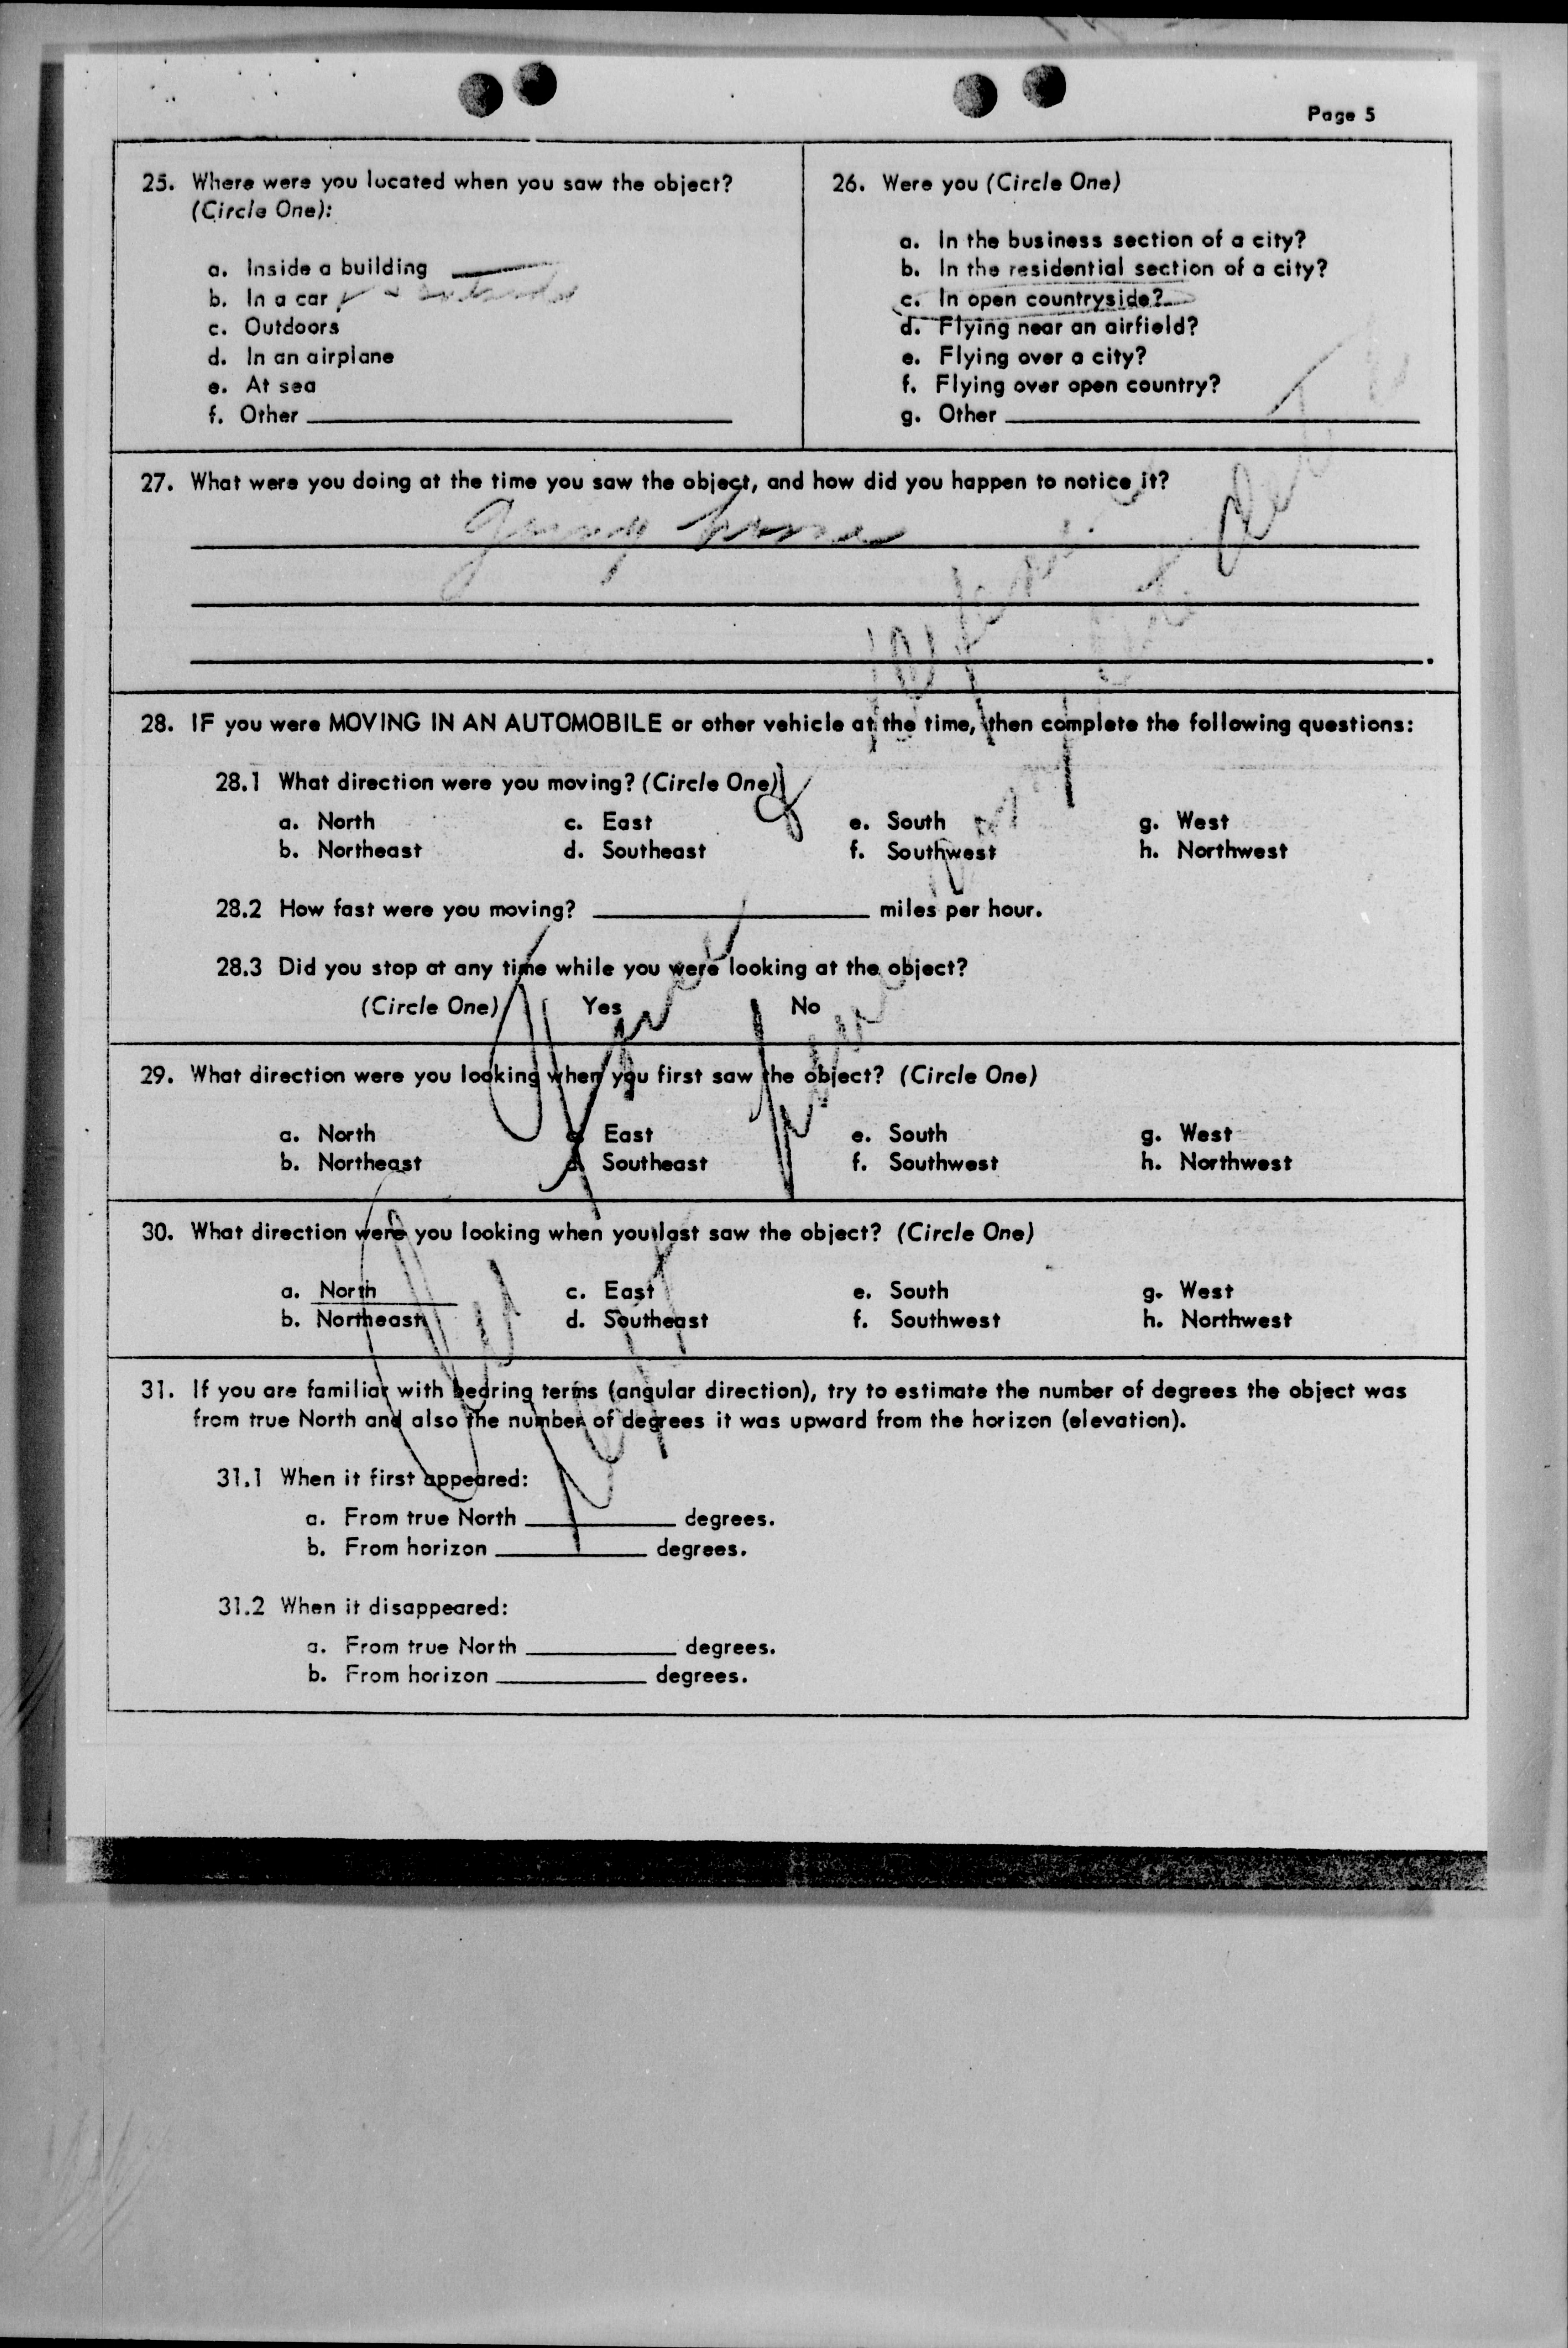 Page 5
25. Where were you located when you saw the object?
(Circle One):
a. Inside a building
b. In a car
c. Outdoors
d. In an airplane
e. At sea
f. Other
26. Were you (Circle One)
a. In the business section of a city?
b. In the residential section of a city?
c. In open countryside?
d. Flying near an airfield?
e. Flying over a city?
f. Flying over open country?
g. Other
27. What were you doing at the time you saw the object, and how did you happen to notice it?
going home
28. IF you were MOVING IN AN AUTOMOBILE or other vehicle at the time, then complete the following questions:
28.1 What direction were you moving? (Circle One)
a. North c. East e. South g. West
b. Northeast d. Southeast f. Southwest h. Northwest
28.2 How fast were you moving? miles per hour.
28.3 Did you stop at any time while you were looking at the object?
(Circle One) Yes No
29. What direction were you looking when you first saw the object? (Circle One)
a. North c. East e. South g. West
b. Northeast d. Southeast f. Southwest h. Northwest
30. What direction were you looking when you last saw the object? (Circle One)
a. North c. East e. South g. West
b. Northeast d. Southeast f. Southwest h. Northwest
31. If you are familiar with bearing terms (angular direction), try to estimate the number of degrees the object was
from true North and also the number of degrees it was upward from the horizon (elevation).
31.1 When it first appeared:
a. From true North degrees.
b. From horizon degrees.
31.2 When it disappeared:
a. From true North degrees.
b. From horizon degrees.